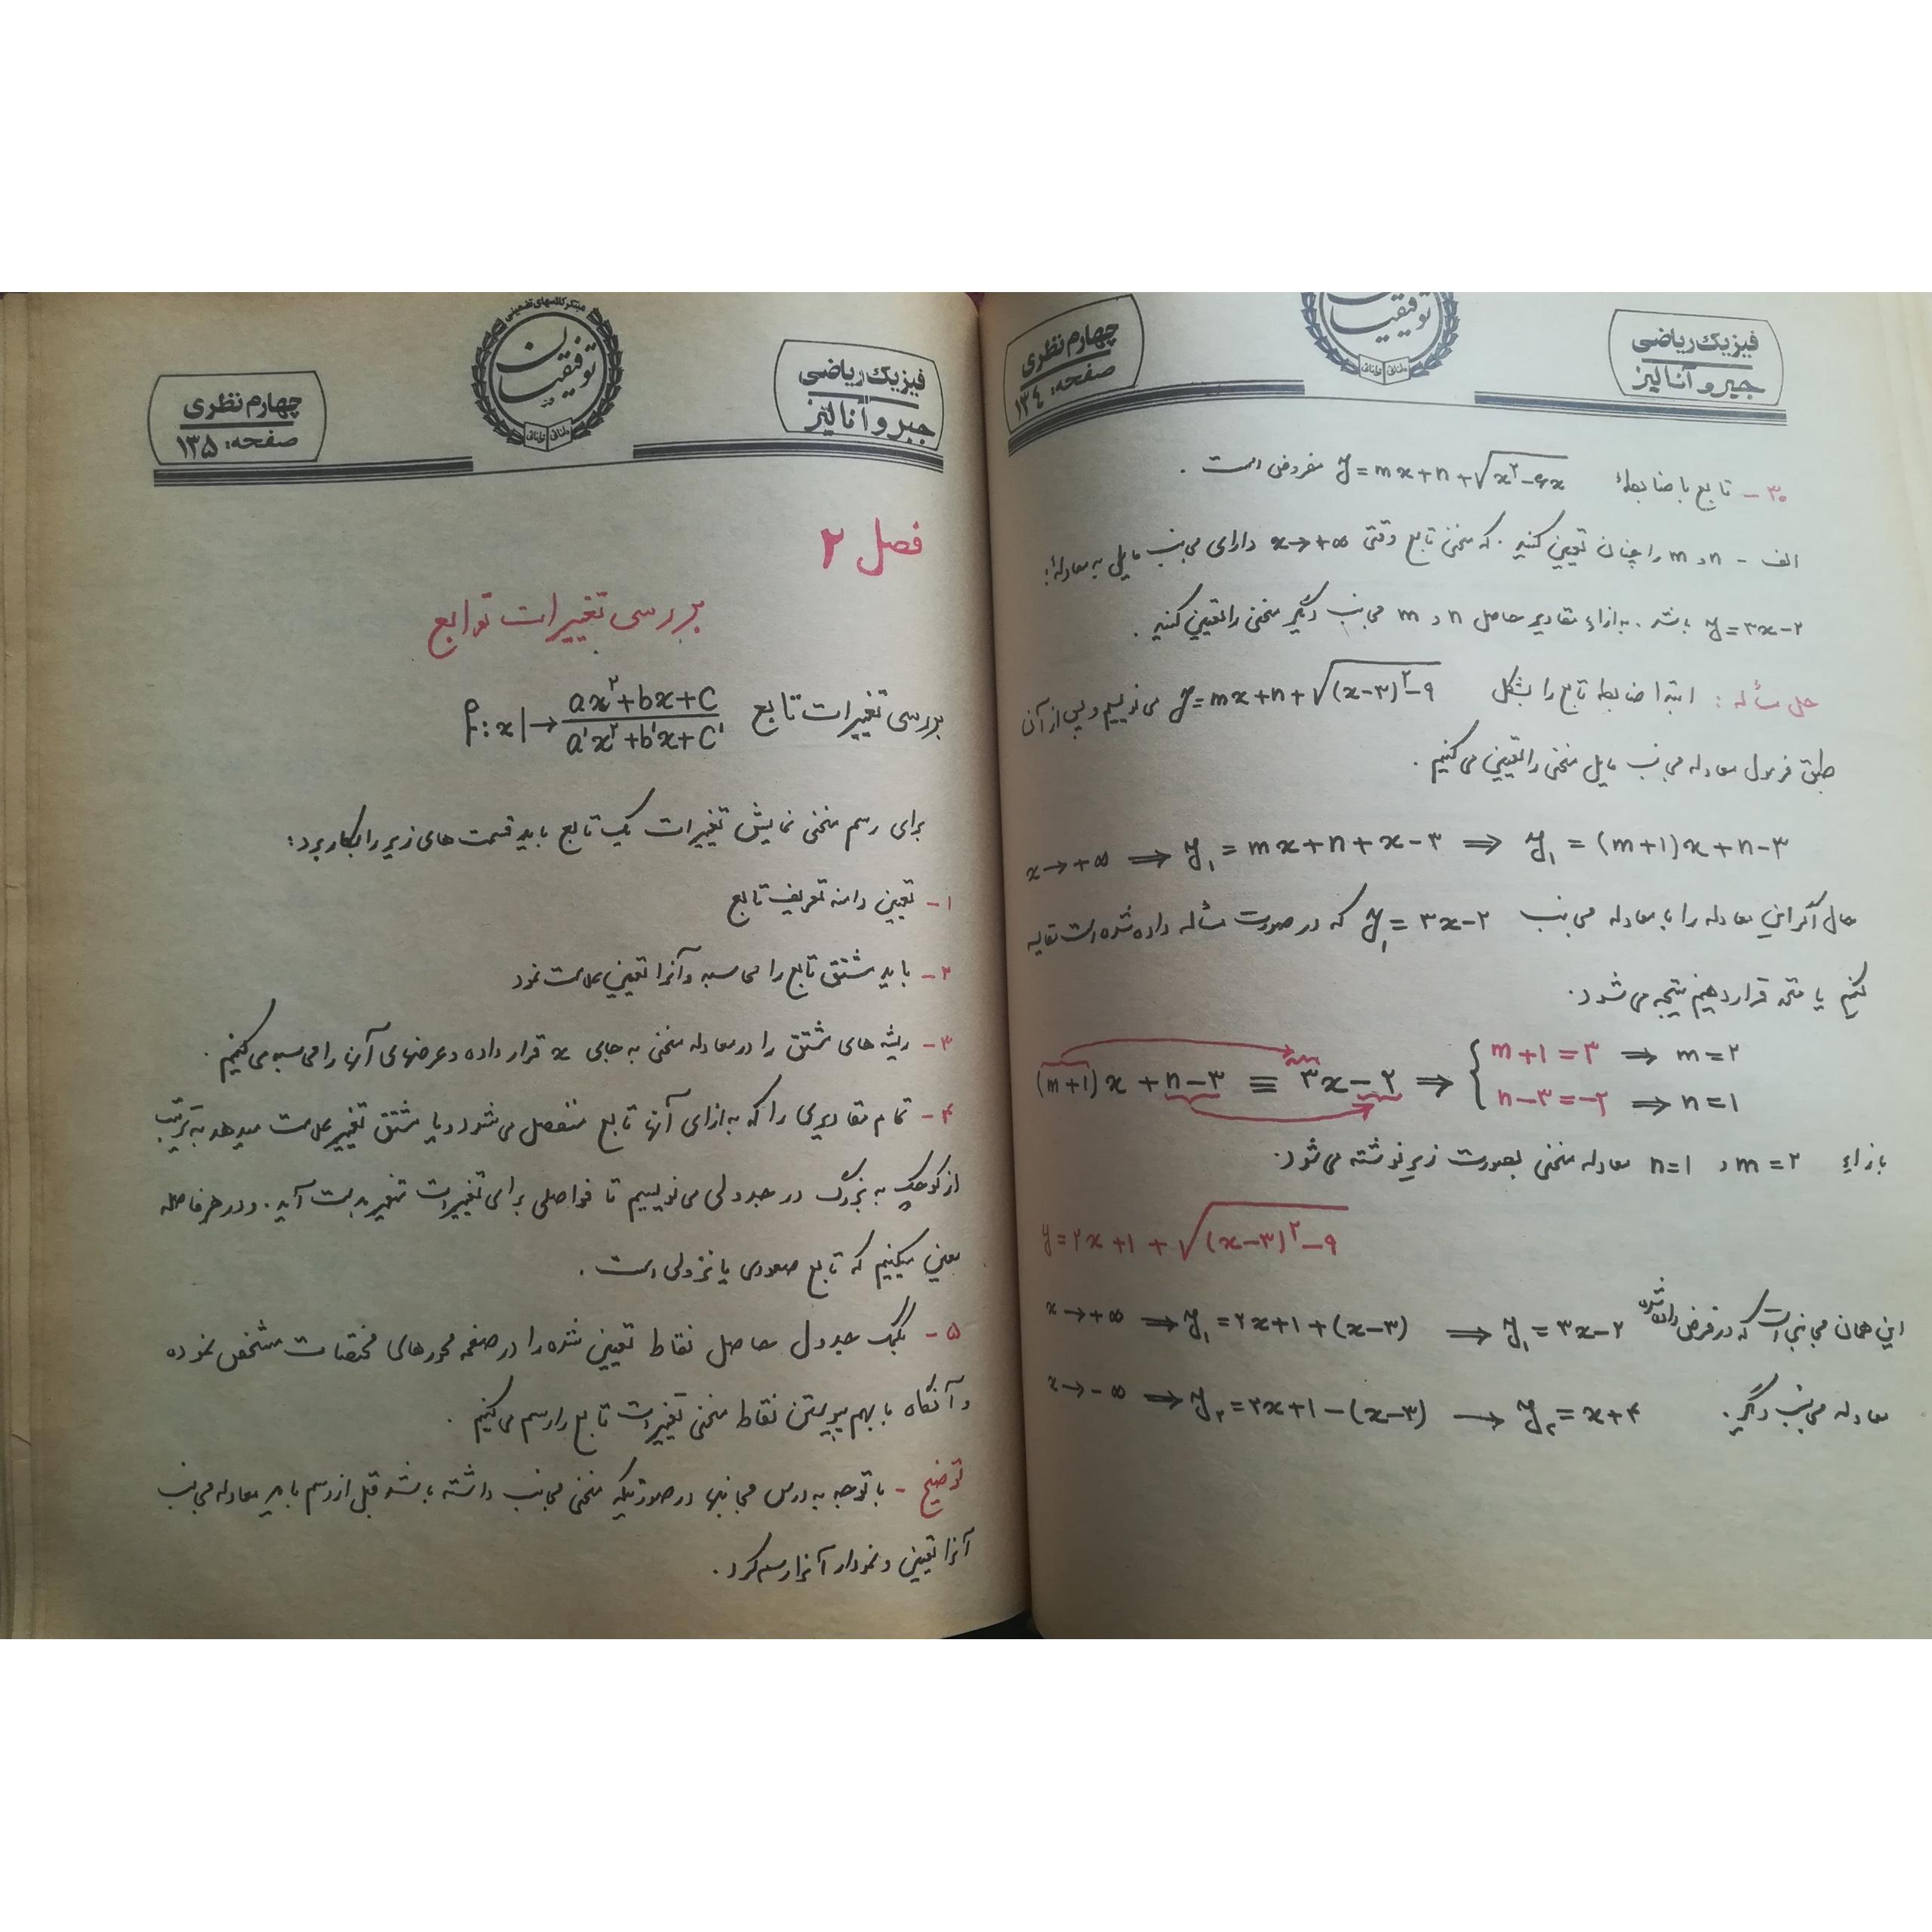 فیزیک ریاضی
جبر و آنالیز
توفیقیان
چهارم نظری
صفحه: ۱۳۴
۳۰ - تابع با ضابطهٔ y = mx + n + √(x² - ۶x) مفروض است .
الف - n و m را چنان تعیین کنید . که منحنی تابع وقتی x → +∞ دارای مجانب مایل به معادلهٔ :
y = ۳x - ۲ باشد . به ازاء مقادیر حاصل n و m مجانب دیگر منحنی را تعیین کنید .
حل مسأله : ابتدا ضابطه تابع را بشکل y = mx + n + √((x-۳)² - ۹) می نویسیم و پس از آن
طبق فرمول معادله مجانب مایل منحنی را تعیین می کنیم .
x → +∞ ⟹ y₁ = mx + n + x - ۳ ⟹ y₁ = (m+1)x + n - ۳
حال اگر این معادله را با معادله مجانب y₁ = ۳x - ۲ که در صورت مسأله داده شده است مقایسه
کنیم یا متحد قرار دهیم نتیجه می شود .
(m+1)x + n - ۳ ≡ ۳x - ۲ ⟹ { m+1 = ۳ ⟹ m = ۲
n - ۳ = -۲ ⟹ n = 1
بازاءِ m = ۲ و n = 1 معادله منحنی بصورت زیر نوشته می شود .
y = ۲x + 1 + √((x-۳)² - ۹)
x → +∞ ⟹ y₁ = ۲x + 1 + (x-۳) ⟹ y₁ = ۳x - ۲ این همان مجانبی است که در فرض داده شده
x → -∞ ⟹ y₂ = ۲x + 1 - (x-۳) → y₂ = x + ۴ معادله مجانب دیگر .
فیزیک ریاضی
جبر و آنالیز
مبتکر کلاسهای تضمینی
توفیقیان
چهارم نظری
صفحه: ۱۳۵
فصل ۲
بررسی تغییرات توابع
بررسی تغییرات تابع f : x |→ (ax² + bx + c)/(a'x² + b'x + c')
برای رسم منحنی نمایش تغییرات یک تابع باید قسمت های زیر را بکار برد :
۱ - تعیین دامنه تعریف تابع
۲ - باید مشتق تابع را محاسبه و آنرا تعیین علامت نمود
۳ - ریشه های مشتق را در معادله منحنی به جای x قرار داده و عرضهای آنها را محاسبه می کنیم .
۴ - تمام مقادیری را که به ازای آنها تابع منفصل می شود و یا مشتق تغییر علامت میدهد به ترتیب
از کوچک به بزرگ در جدولی می نویسیم تا فواصلی برای تغییرات متغیر بدست آید . و در هر فاصله
معین میکنیم که تابع صعودی یا نزولی است .
۵ - بکمک جدول حاصل نقاط تعیین شده را در صفحه محورهای مختصات مشخص نموده
و آنگاه با بهم پیوستن نقاط منحنی تغییرات تابع را رسم می کنیم .
توضیح - با توجه به درس مجانبها در صورتیکه منحنی مجانب داشته باشد قبل از رسم باید معادله مجانب
آنرا تعیین و نمودار آنرا رسم کرد .